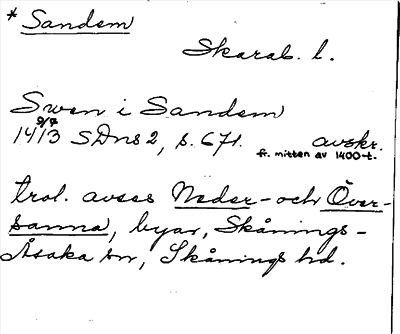 * Sandem
Skarab. l.
Swen i Sandem
9/7
1413 SDns 2, s. 671. avskr.
fr. mitten av 1400-t.
trol. avses Neder- och Över-
sanna, byar, Skånings-
Åsaka sn, Skånings hd.